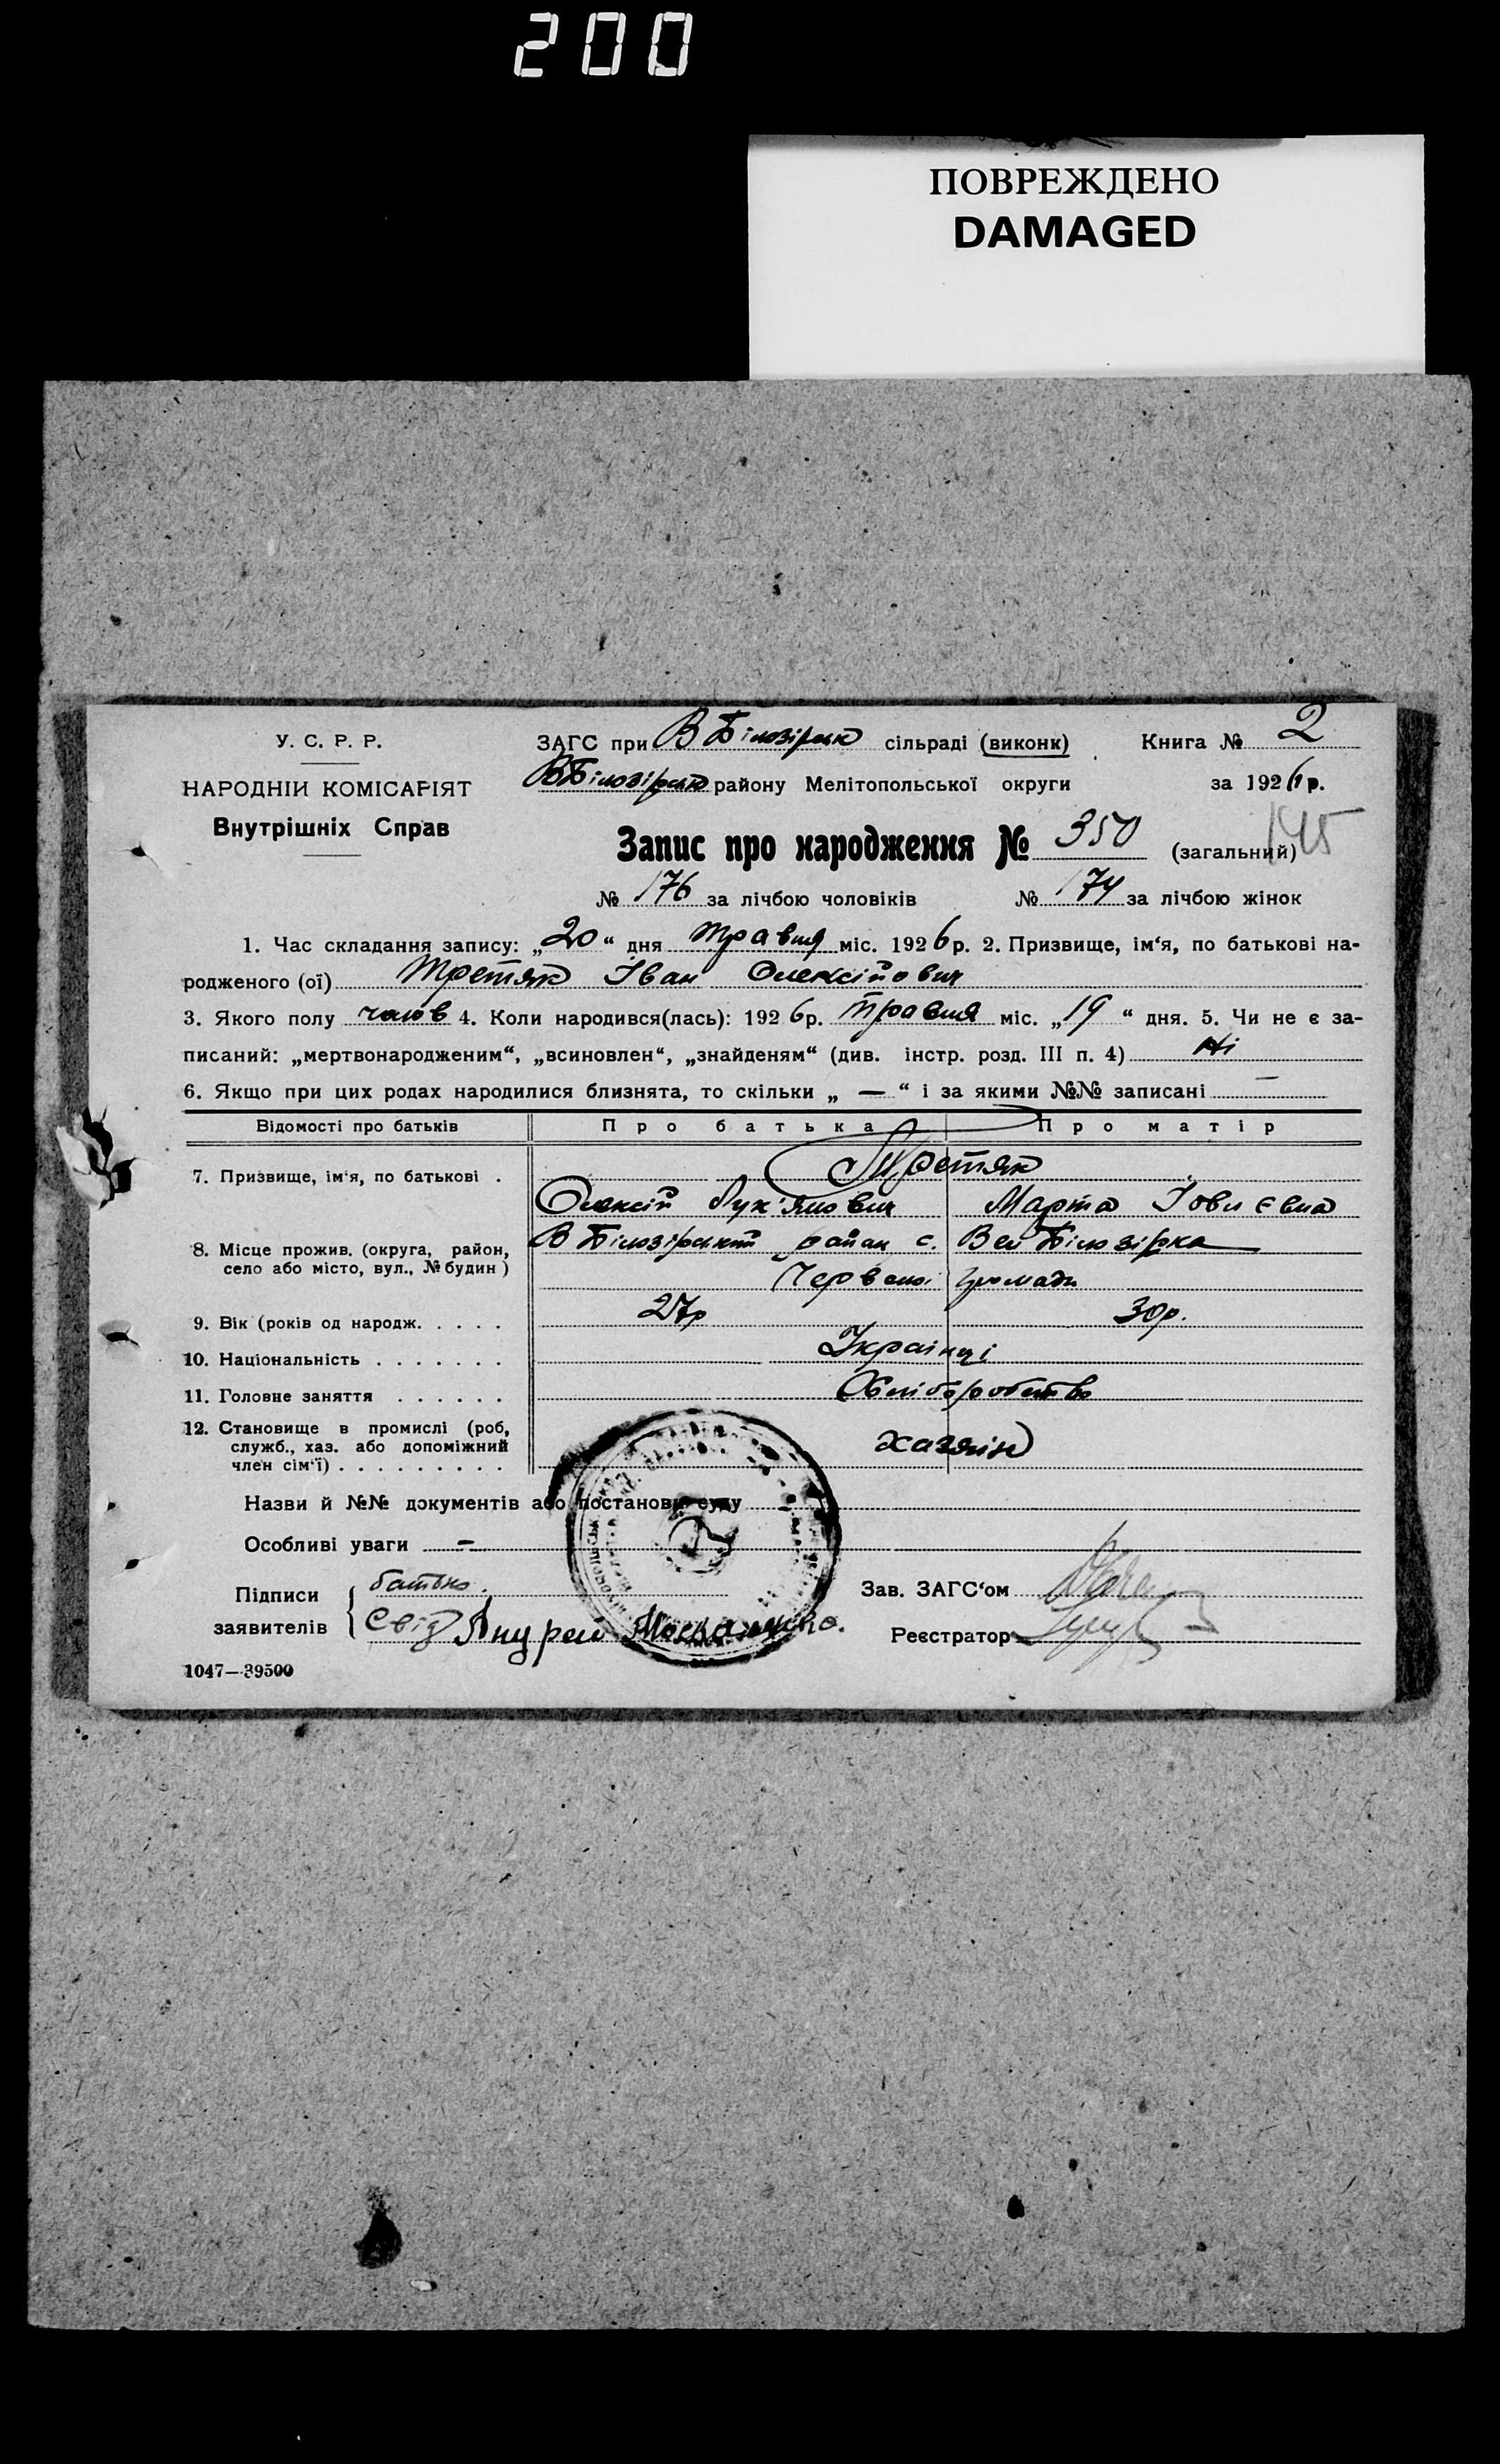 200
ПОВРЕЖДЕНО
DAMAGED
У. С. Р. Р.
НАРОДНІЙ КОМІСАРІЯТ
Внутрішніх Справ
ЗАГС при В Білозірськ сільраді (виконк) Книга № 2
ВБілозірськ району Мелітопольської округи за 1926 р.
Запис про народження № 350 (загальний) 145
№ 176 за лічбою чоловіків № 174 за лічбою жінок
1. Час складання запису: „20“ дня травня міс. 1926 р. 2. Призвище, ім‘я, по батькові на-
родженого (ої) Третяк Іван Олексійович
3. Якого полу чолов 4. Коли народився(лась): 1926 р. травня міс. „19“ дня. 5. Чи не є за-
писаний: „мертвонародженим“, „всиновлен“, „знайденям“ (див. інстр. розд. III п. 4) Ні
6. Якщо при цих родах народилися близнята, то скільки „ — “ і за якими №№ записані —
Відомості про батьків Про батька Про матір
7. Призвище, ім‘я, по батькові . Третяк
Олексій Лук'янович Марта Іовлєвна
8. Місце прожив. (округа, район, В Білозірськт район с. Вел Білозірка
село або місто, вул., № будин) Червоної громади
9. Вік (років од народж. . . . . 27р 30р.
10. Національність . . . . . . . Українці
11. Головне заняття . . . . . . Хліборобство
12. Становище в промислі (роб,
служб., хаз. або допоміжний хазяїн
член сім‘ї) . . . . . . . . .
Назви й №№ документів або постанови суду
Особливі уваги —
Підписи батько. Зав. ЗАГС‘ом
заявителів Свід Андрей Москаленко. Реєстратор
1047—39500